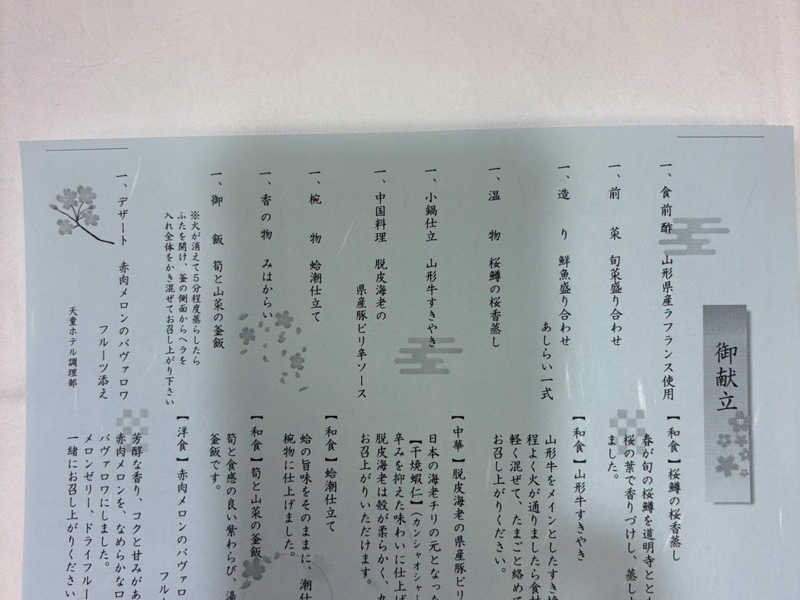 御献立
一、食前酢　山形県産ラフランス使用
一、前　菜　旬菜盛り合わせ
一、造　り　鮮魚盛り合わせ
あしらい一式
一、温　物　桜鱒の桜香蒸し
一、小鍋仕立　山形牛すきやき
一、中国料理　脱皮海老の
県産豚ピリ辛ソース
一、椀　物　蛤潮仕立て
一、香の物　みはからい
一、御　飯　筍と山菜の釜飯
※火が消えて５分程度蒸らしたら
ふたを開け、釜の側面からヘラを
入れ全体をかき混ぜてお召し上がり下さい
一、デザート　赤肉メロンのバヴァロワ
フルーツ添え
天童ホテル調理部
【和食】桜鱒の桜香蒸し
春が旬の桜鱒を道明寺とと
桜の葉で香りづけし、蒸し
ました。
【和食】山形牛すきやき
山形牛をメインとしたすき
程よく火が通りましたら食材
軽く混ぜて、たまごと絡めて
お召し上がりください。
【中華】脱皮海老の県産豚ピリ
日本の海老チリの元となった
【干焼蝦仁】（カンシャオシャー
辛みを抑えた味わいに仕上げ
脱皮海老は殻が柔らかく、
お召し上がりいただけます。
【和食】蛤潮仕立て
蛤の旨味をそのままに、潮仕
椀物に仕上げました。
【和食】筍と山菜の釜飯
筍と食感の良い紫わらび、
釜飯です。
【洋食】赤肉メロンのバヴァロ
フル
芳醇な香り、コクと甘みがあ
赤肉メロンを、なめらかな口
バヴァロワにしました。
メロンゼリー、ドライフルー
一緒にお召し上がりください